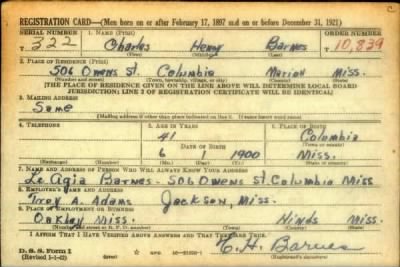 C
REGISTRATION CARD—(Men born on or after February 17, 1897 and on or before December 31, 1921)
SERIAL NUMBER 1. NAME (Print) ORDER NUMBER
T 322 Charles Henry Barnes T 10,839
2. PLACE OF RESIDENCE (Print)
506 Owens St. Columbia Marion Miss.
(Number and street) (Town, township, village, or city) (County) (State)
[THE PLACE OF RESIDENCE GIVEN ON THE LINE ABOVE WILL DETERMINE LOCAL BOARD
JURISDICTION; LINE 2 OF REGISTRATION CERTIFICATE WILL BE IDENTICAL]
3. MAILING ADDRESS
Same
[Mailing address if other than place indicated on line 2. If same insert word same]
4. TELEPHONE 5. AGE IN YEARS 6. PLACE OF BIRTH
41 Columbia
DATE OF BIRTH (Town or county)
6 1 1900 Miss.
(Exchange) (Number) (Mo.) (Day) (Yr.) (State or country)
7. NAME AND ADDRESS OF PERSON WHO WILL ALWAYS KNOW YOUR ADDRESS
Barnes - 506 Owens St. Columbia Miss
8. EMPLOYER'S NAME AND ADDRESS
Troy A. Adams Jackson, Miss.
9. PLACE OF EMPLOYMENT OR BUSINESS
Oakley Miss. Hinds Miss.
(Number and street or R. F. D. number) (Town) (County) (State)
I AFFIRM THAT I HAVE VERIFIED ABOVE ANSWERS AND THAT THEY ARE TRUE.
D. S. S. Form 1
(Revised 1-1-42) (over) C. H. Barnes